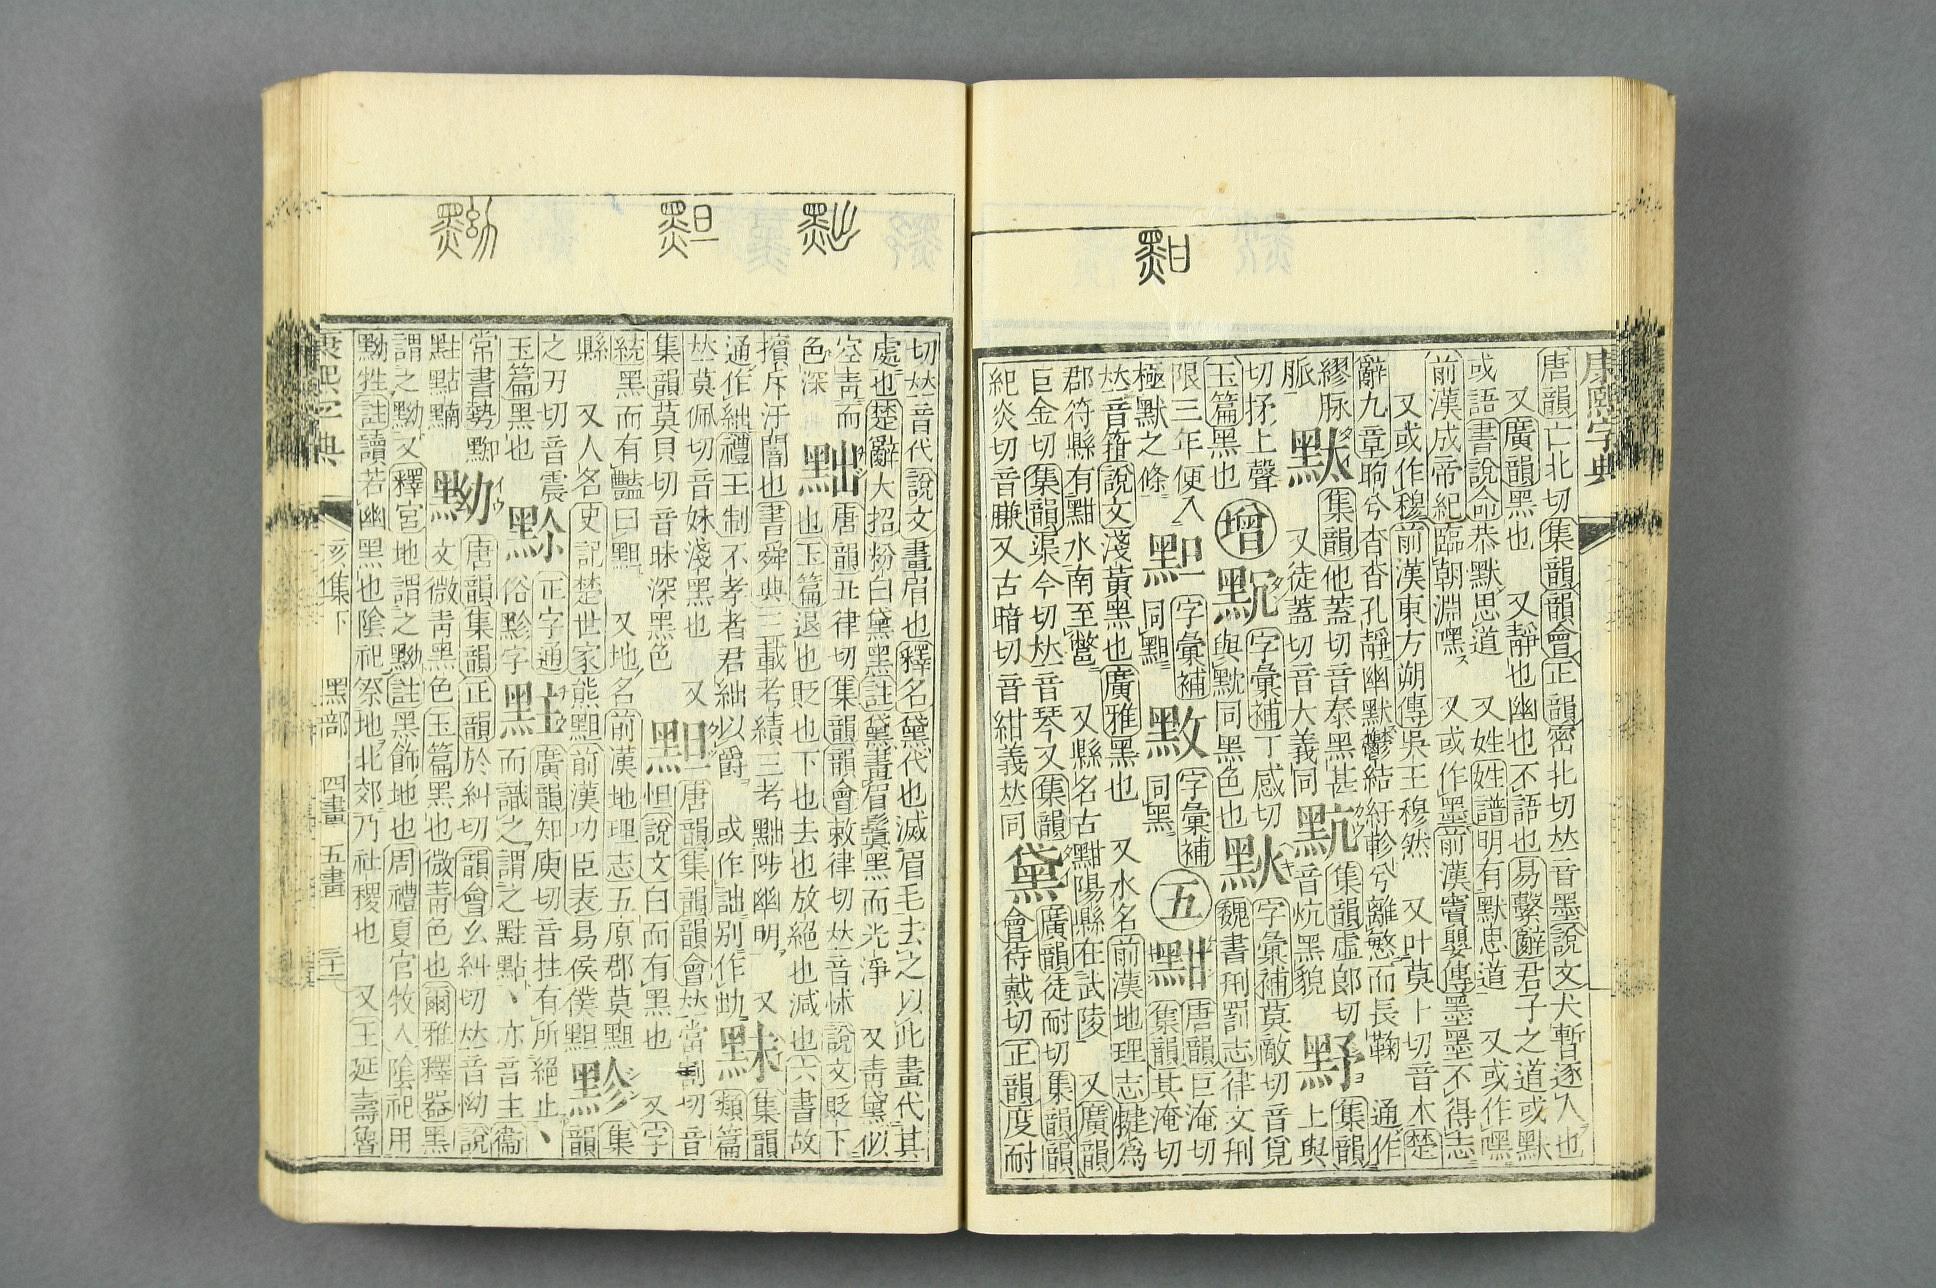 康熙字典
唐韻亡北切集韻韻會正韻密北切𠀤音墨說文犬暫逐人也
又廣韻黑也 又靜也幽也不語也易繫辭君子之道或默
或語書說命恭默思道 又姓姓譜明有默思道 又或作嘿
前漢成帝紀臨朝淵嘿 又或作墨前漢竇嬰傳墨墨不得志
又或作穆前漢東方朔傳吳王穆然 又叶莫卜切音木楚
辭九章眴兮杳杳孔靜幽默鬱結紆軫兮離慜而長鞠 通作
繆脉
脈
集韻他蓋切音泰黑甚
又徒蓋切音大義同
集韻虛郎切
音炕黑貌
集韻上與
切抒上聲
玉篇黑也
增 黕
字彙補丁感切
與黕同黑色也
字彙補莫敵切音覓
魏書刑罰志律文刑
限三年便入
極默之條
字彙補
同䵣
字彙補
同黑
五 黚
唐韻巨淹切
集韻其淹切
𠀤音箝說文淺黃黑也廣雅黑也 又水名前漢地理志犍爲
郡符縣有黚水南至鷩 又縣名古黚陽縣在武陵 又廣韻
巨金切集韻渠今切𠀤音琴又集韻
紀炎切音賺又古暗切音紺義𠀤同
黛
廣韻徒耐切集韻韻
會待戴切正韻度耐
切𠀤音代說文畫眉也釋名黛代也滅眉毛去之以此畫代其
處也楚辭大招粉白黛黑註黛畫眉鬢黑而光淨 又靑黛似
空靑而
色深
黜
唐韻丑律切集韻韻會敕律切𠀤音怵說文貶下
也玉篇退也貶也下也去也放絕也減也六書故
擯斥汙闇也書舜典三載考績三考黜陟幽明 又
通作絀禮王制不孝者君絀以爵 或作詘別作㔘
䵢
集韻
類篇
𠀤莫佩切音妹淺黑也 又
集韻莫貝切音昧深黑色
䵣
唐韻集韻韻會𠀤當割切音
怛說文白而有黑也 又字
統黑而有豔曰䵣 又地名前漢地理志五原郡莫䵣
縣 又人名史記楚世家熊䵣前漢功臣表易侯僕䵣
黲
集
韻
之刃切音震
玉篇黑也
正字通
俗黲字
黈
廣韻知庾切音拄有所絕止丶
而識之謂之黈點丶亦音主衞
常書勢黝
黈點黭
黝
唐韻集韻正韻於糾切韻會幺糾切𠀤音怮說
文微靑黑色玉篇黑也微靑色也爾雅釋器黑
謂之黝又釋宮地謂之黝註黑飾地也周禮夏官牧人陰祀用
黝牲註讀若幽黑也陰祀祭地北郊乃社稷也 又王延壽魯
康熙字典 亥集下 黑部 四畫 五畫 三十一